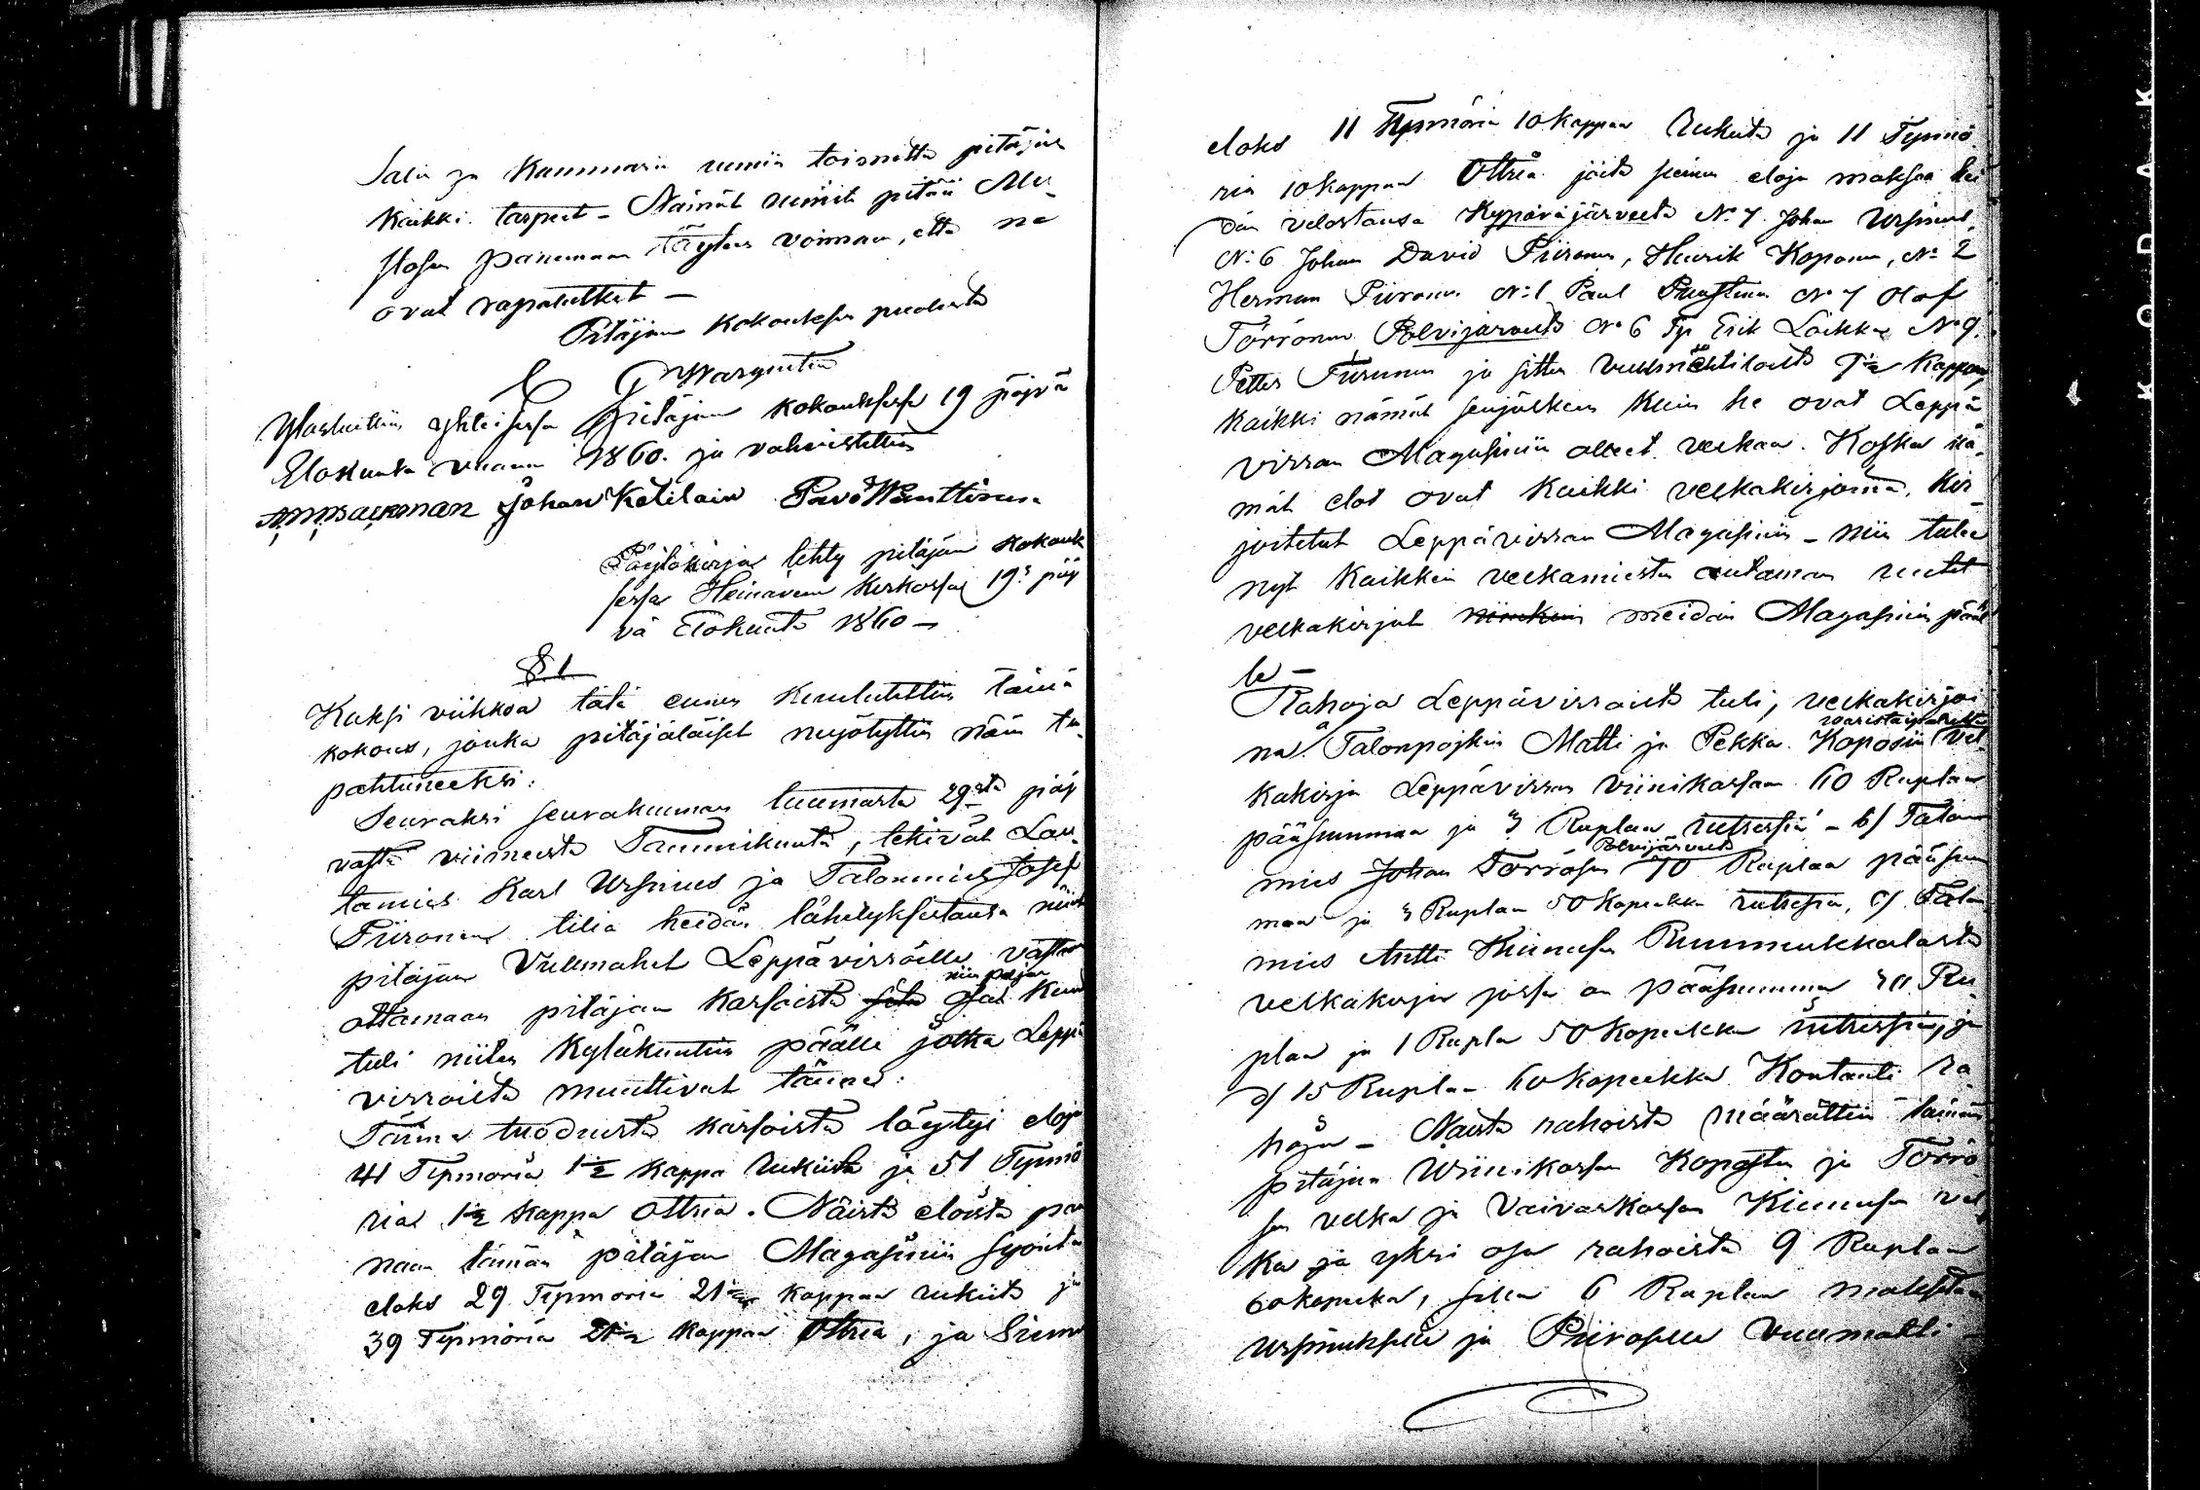 Salin ja Kammarin uunin toisnetta pitäjän
Kaikki tarpeet – Nämät uunit pitää Mu-
stosen paneman täyteen voimaan, että ne
ovat rapatuttkut –
Pitäjän Kokouksen puolesta
G Wargentin
Ylösluettiin yhteisessä Pitäjän Kokouksessa 19 päjvä
Elokuuta vuonna 1860. ja vahvistettiin
Johan Ketilain Pavo Wänttinen
Pöytäkirja tehty pitäjän Kokouk
sessa Heinäveen Kirkossa 19 päj
vä Elokuuta 1860 –
§ 1
Kaksi viikkoa tätä ennen Kuulutettiin tämä
kokous, jonka pitäjäläiset myötyttiin näin ta-
pahtuneeksi:
Seuraksi seurakunnan tuumasta 29stä päj
västä viimeistä Tammikuuta, tekivät Lau-
tamies Karl Ursinus ja Talonmies Josef
Piironen tiliä heidän lähetyksestänsä niin
pitäjän Vullmahet Leppävirroille vastan
niin paljon
ottamaan pitäjän Karsoista osat Kuin
tuli niiten Kyläkuntiin päälle jotka Leppä
virroilta muuttivat tänne:
Tänne tuoduista karsoista löytyi eloja
41 Tynnöriä 1½ Kappa Rukiita ja 51 Tynnö
riä 1½ Kappa Ottria. Näistä eloista pan
naan tämän pitäjän Magasiniin Syöntö
eloks 29 Tynnöriä 21½ Kappaa rukiita ja
39 Tynnöriä 21½ Kappaa Ottria, ja Sieme
eloks 11 Tynnöriä 10 Kappaa Rukiita ja 11 Tynnö
riä 10 Kappaa Ottria joita siemen eloja maksaa hei
dän velastansa Kypäräjärveltä No 7 Johan Ursinus,
No 6 Johan David Piironen, Henrik Koponen, No 2
Herman Piironen No 1 Paul Puustinen No 7 Olof
Törrönen Polvijärveltä No 6 Erik Loikka No 9
Petter Turunen ja sitten 7½ Kappaa,
Kaikki nämät senjälkeen Kuin he ovat Leppä
virran Magasiniin olleet velkaa. Koska nä-
mät elot ovat Kaikki velkakirjoina, Kir
joitetut Leppävirran Magasiniin – niin tulee
nyt Kaikkein velkamiesten antaman uudet
velkakirjat niinkuin meidän Magasiniin pääl
le –
Rahoja Leppävirroilta tuli, velkakirjoi
na Talonpojkin Matti ja Pekka Koposiin vel
kakirja Leppävirran viinikassaan 60 Ruplaa
pääsumman ja 3 Ruplaa intressiä – b/ Talon
Polvijärveltä
mies Johan Törrösen 70 Ruplaa pääsum
man ja 3 Ruplaa 50 Kopeikka intressiä, c/ Talon
mies Antti Kinnusen Rummukkalasta
velkakirja jossa on pääsumma 30 Ru
plaa ja 1 Rupla 50 Kopeikka intressiä, ja
d/ 15 Ruplaa 60 Kopeikka Kontanti ra
hoja – Näistä rahoista määrättiin tämän
pitäjän Wiinikassan Koposten ja Törrö
sen velka ja Vaivaskassan Kinnusen vel
ka ja yksi osa rahoista 9 Ruplaa
60 kopeikka, sillä 6 Ruplaa maksetaan
Ursinukselle ja Piiroselle Vuumatti-